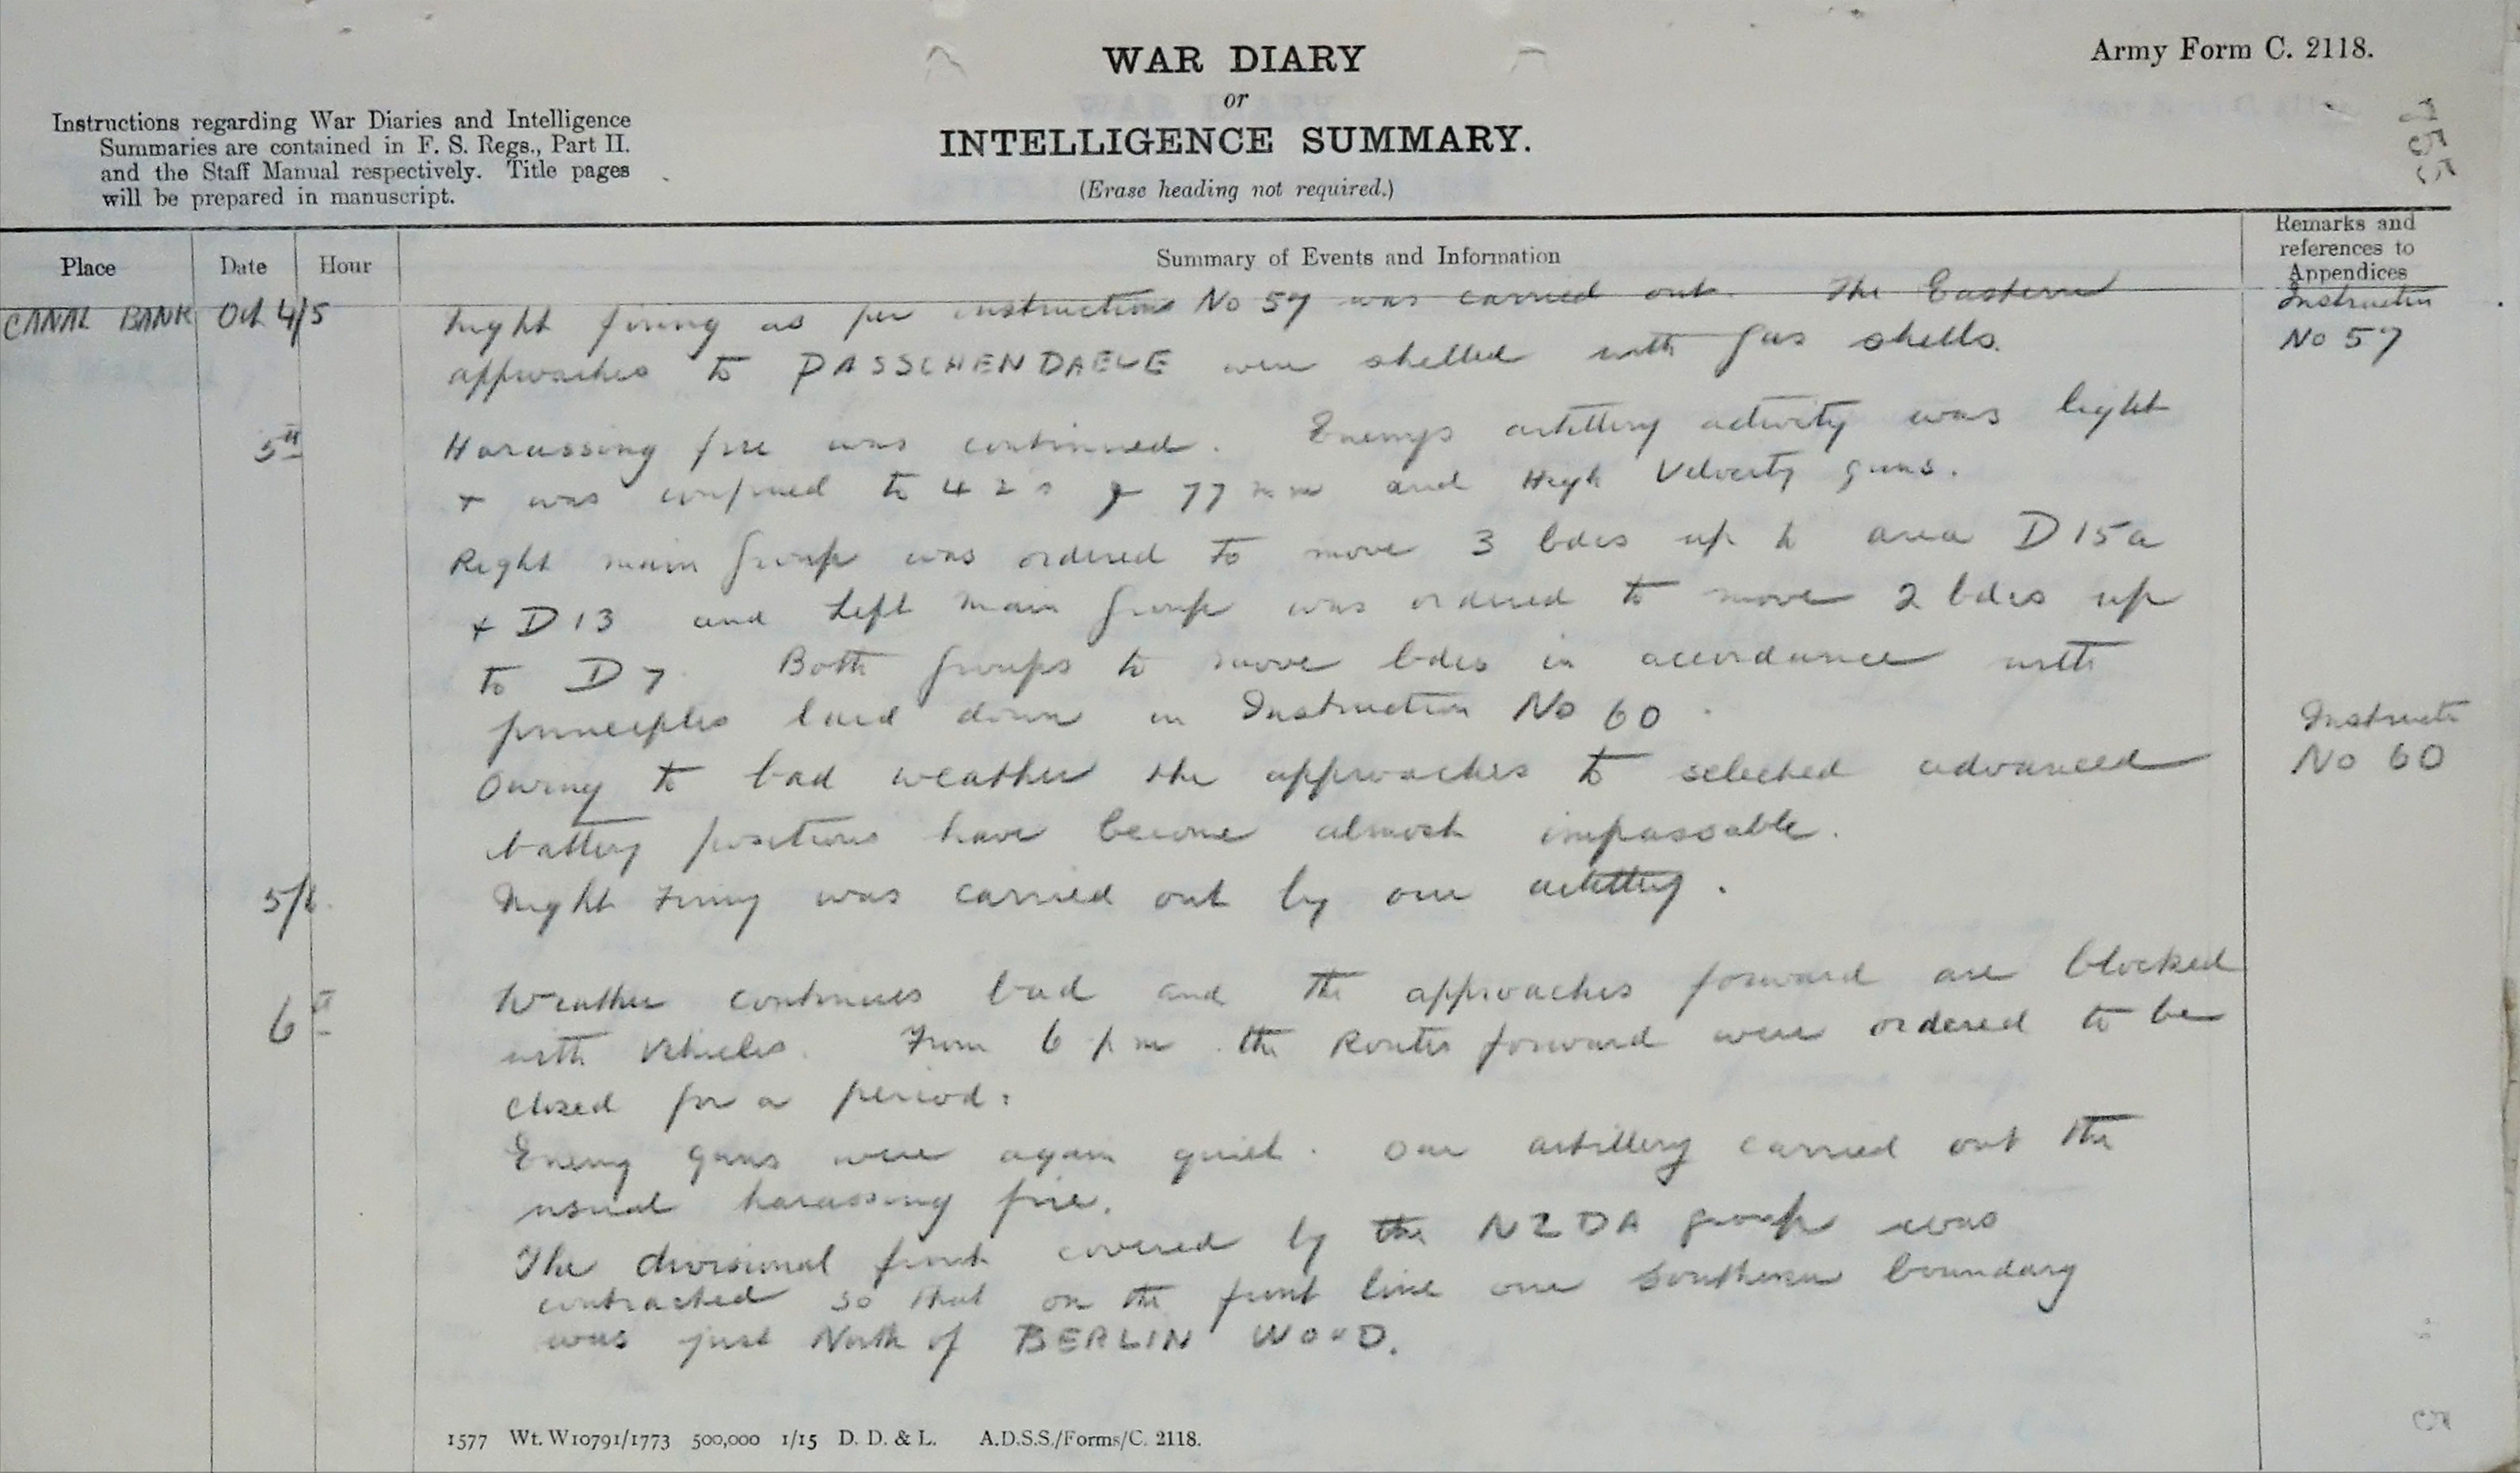 WAR DIARY
or
INTELLIGENCE SUMMARY.
(Erase heading not required.)
Army Form C. 2118.
755
Instructions regarding War Diaries and Intelligence
Summaries are contained in F. S. Regs., Part II.
and the Staff Manual respectively. Title pages
will be prepared in manuscript.
Place
Date
Hour
Summary of Events and Information
Remarks and
references to
Appendices
CANAL BANK Oct 4/5 Night firing as per instructions No 57 was carried out. The Eastern
approaches to PASSCHENDAELE were shelled with gas shells.
Instruction
No 57
5th Harassing fire was continued. Enemys artillery activity was light
+ was confined to 4 2 s & 77 mm and High Velocity guns.
Right main group was ordered to move 3 bdes up to area D 15 a
+ D 13 and Left main group was ordered to move 2 bdes up
to D 7. Both groups to move bdes in accordance with
principles laid down in Instruction No 60.
Instructn
No 60
Owing to bad weather the approaches to selected advanced
battery positions have become almost impassable.
5/6. Night Firing was carried out by our artillery.
6th Weather continues bad and the approaches forward are blocked
with Vehicles. From 6 p m the Routes forward were ordered to be
closed for a period.
Enemy guns were again quiet. Our artillery carried out the
usual harassing fire.
The divisional front covered by the N Z D A group was
contracted so that on the front line our Southern boundary
was just North of BERLIN WOOD.
1577 Wt. W10791/1773 500,000 1/15 D. D. & L. A.D.S.S./Forms/C. 2118.